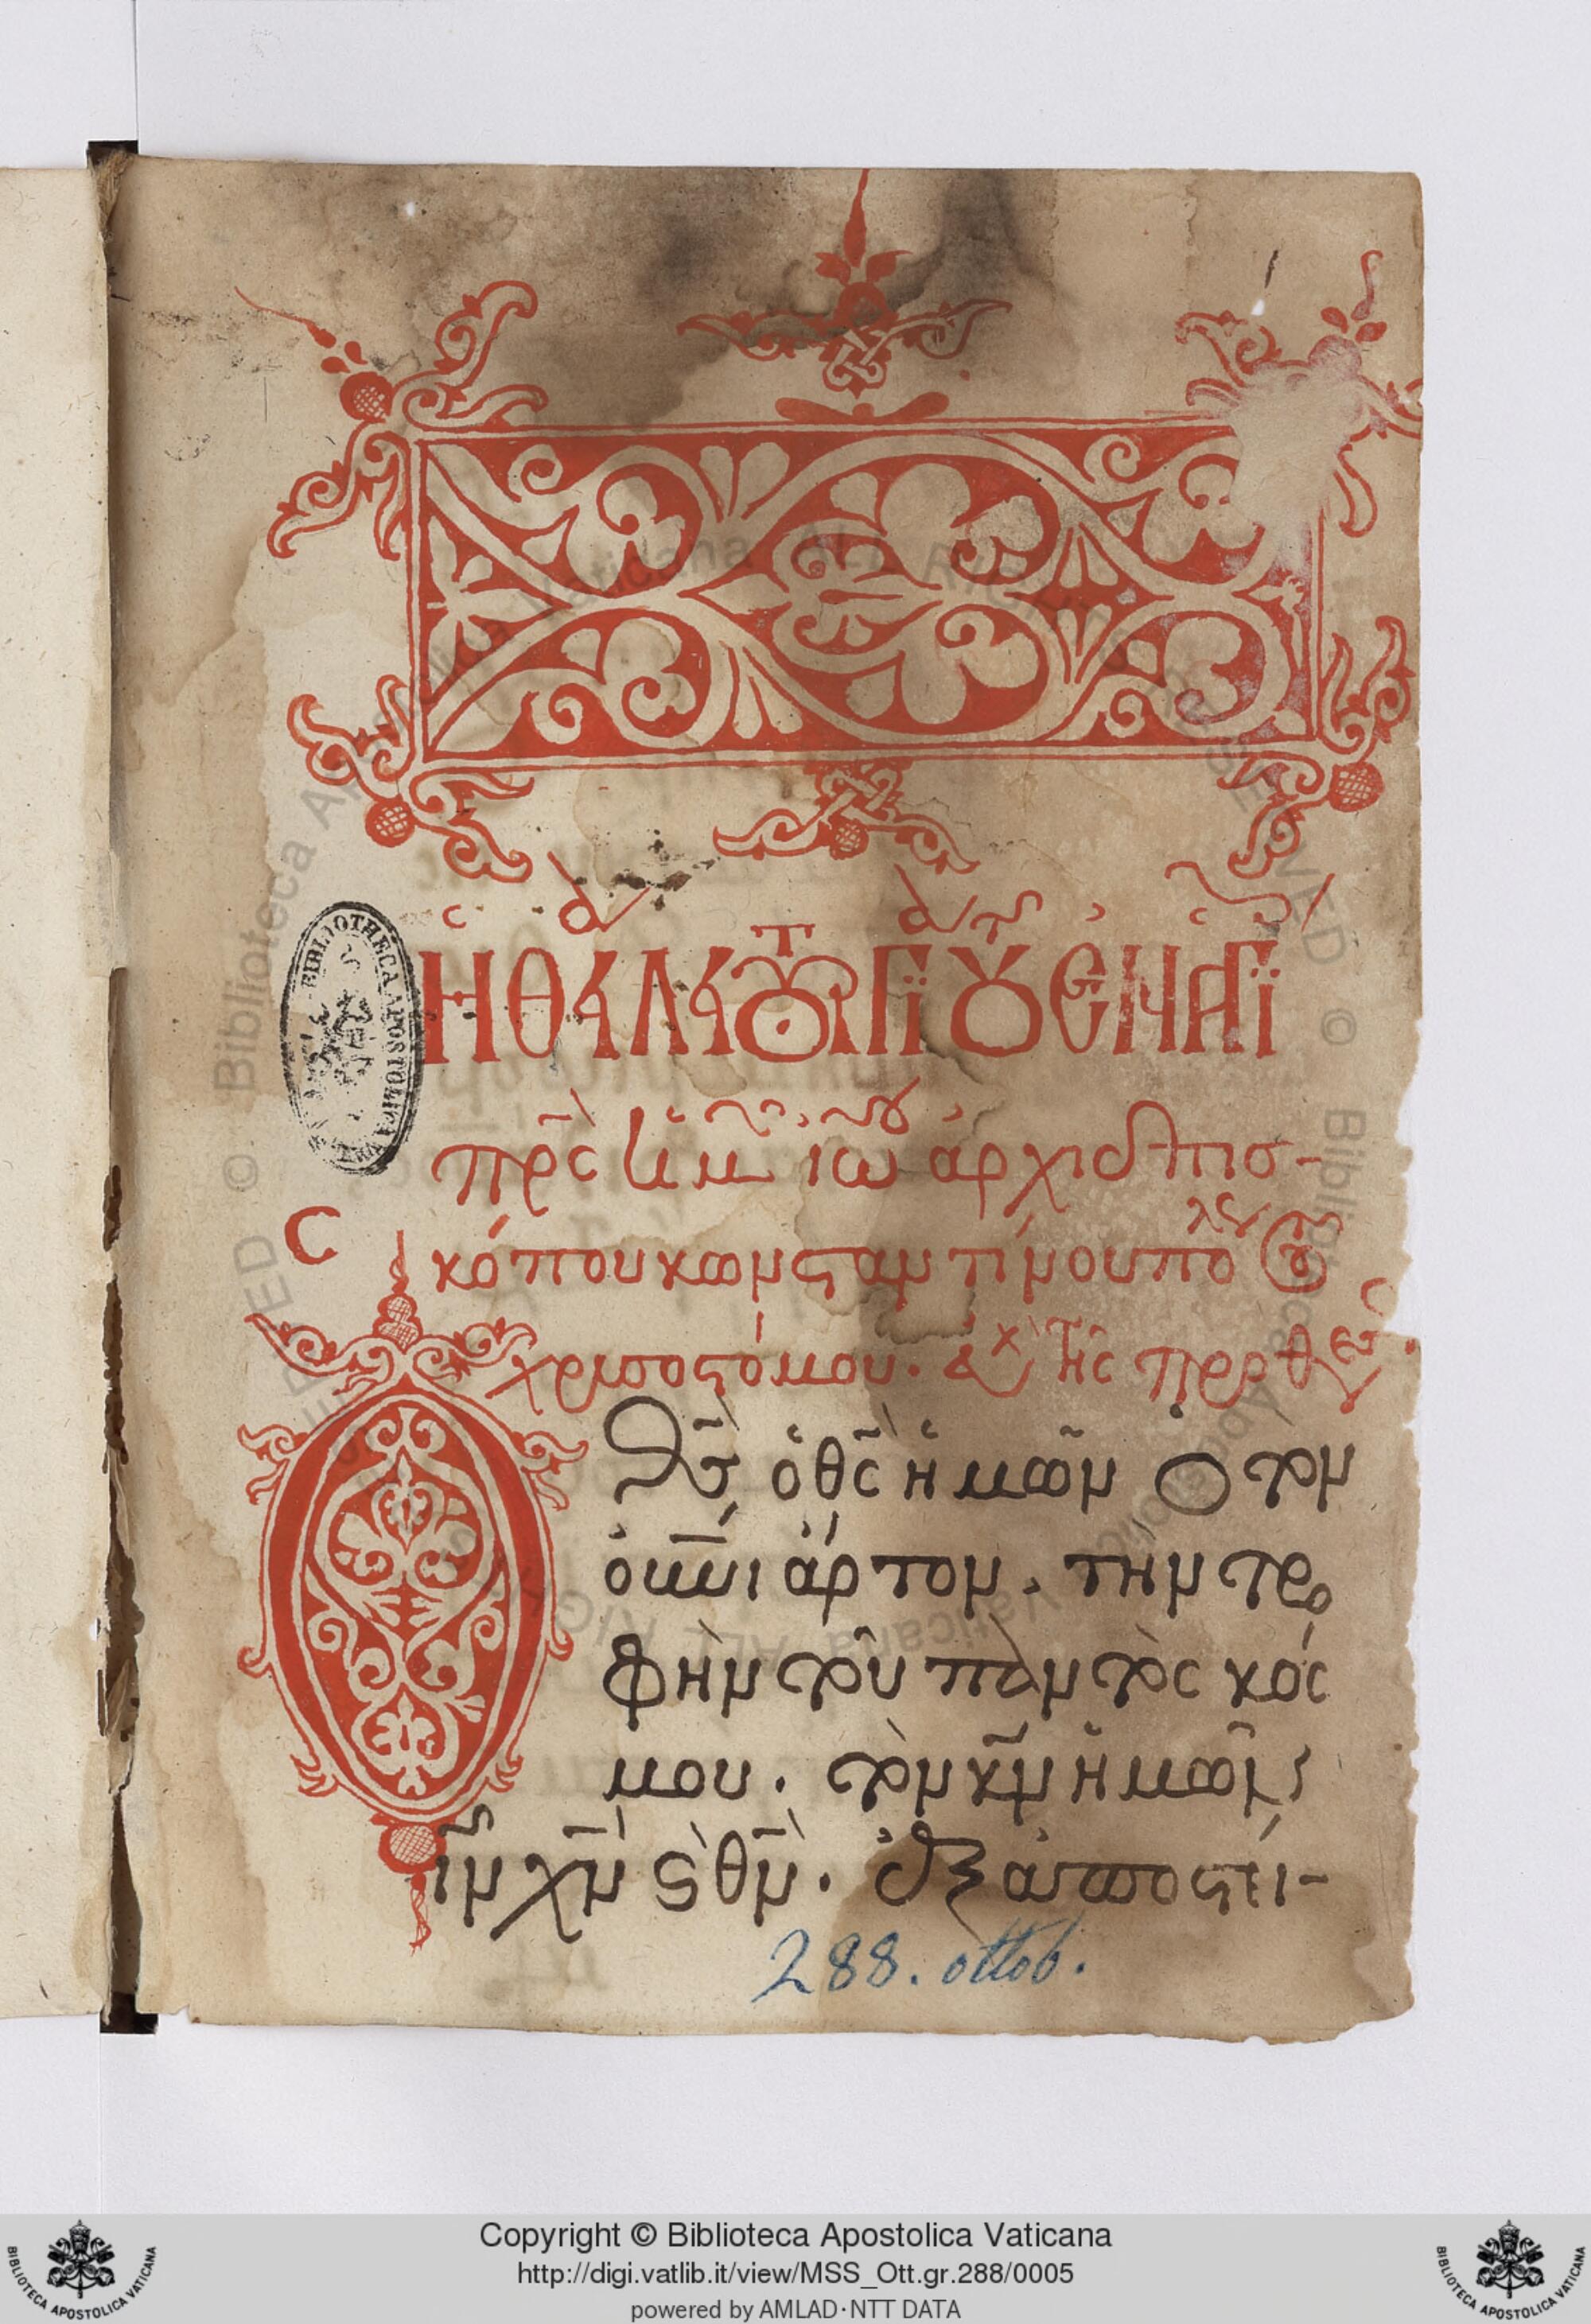 Ἡ ΘΕΊΑ ΛΕΙΤΟΥΡΓΊΑ ΤΟῦ ἘΝ ἉΓΊΟΙς
πρ̅ς ἡμ ἰω ἀρχιεπισ-
κόπου κωνσταντίνουπόλεως τοῦ
χρισοστόμου. εὐχ τῆς προθέσεως.
Ὁ Θ̅ς ὁ θ̅ς ἡμῶν ὁ τὸν
οὐν̅ι ἄρτον. τὴν τρο
φὴν τοῦ παντὸς κόσ
μου. τὸν κ̅ν ἡμῶν
ι̅ν χ̅ν ϛ θ̅ν. ἐξαποστεί-
288. ottob.
BIBLIOTHECA APOSTOLICA
Copyright © Biblioteca Apostolica Vaticana
http://digi.vatlib.it/view/MSS_Ott.gr.288/0005
powered by AMLAD·NTT DATA
BIBLIOTECA APOSTOLICA VATICANA
BIBLIOTECA APOSTOLICA VATICANA